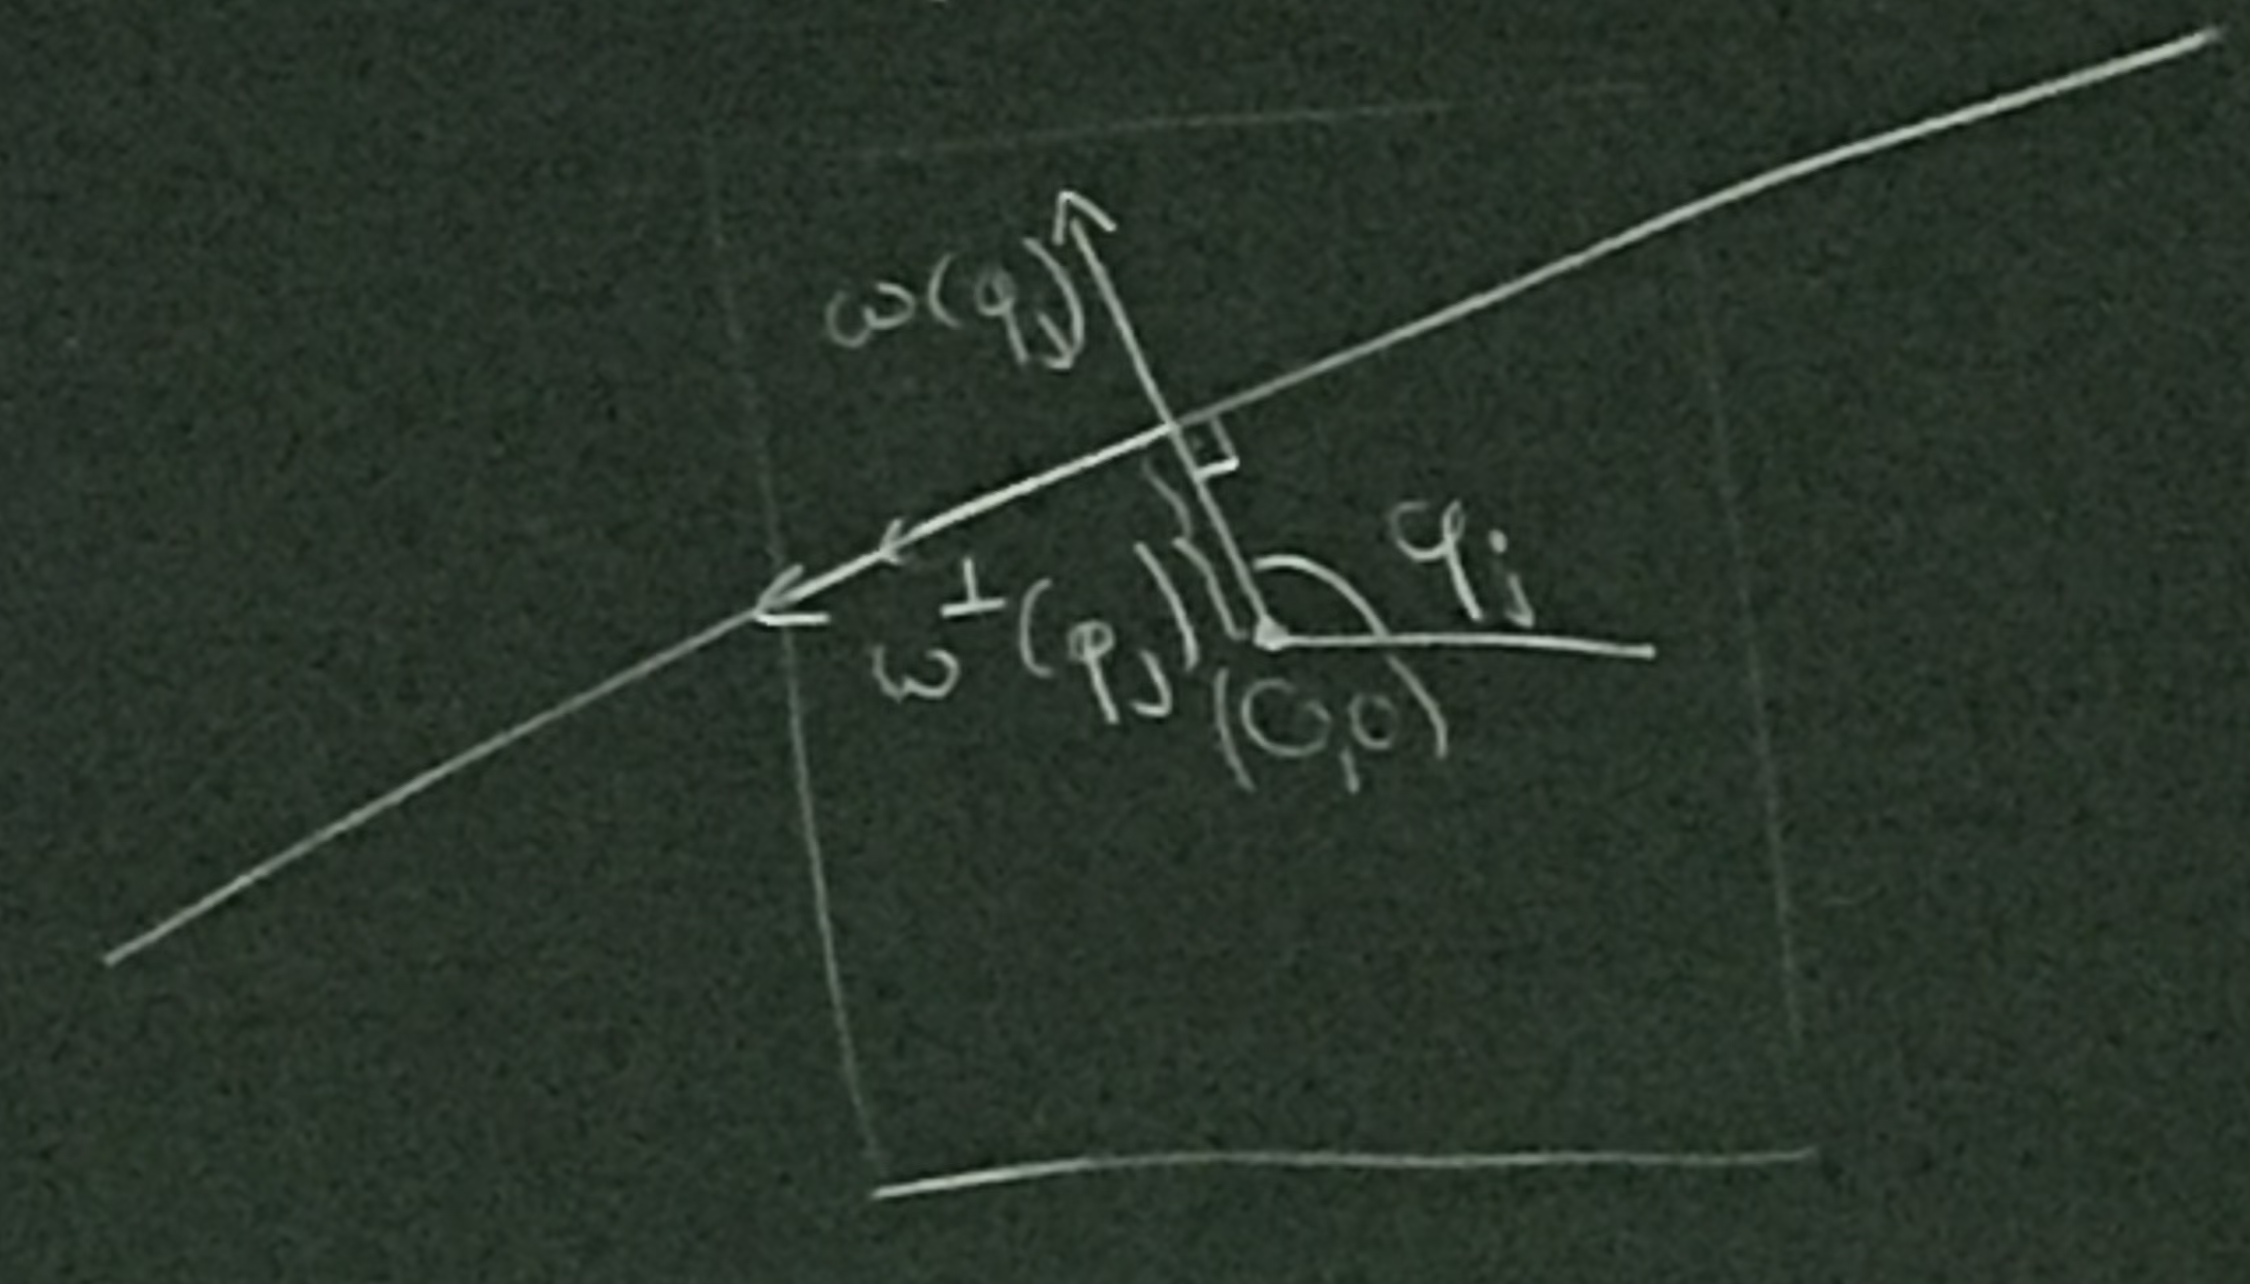 ω(φⱼ)
φⱼ
ω^⊥(φⱼ)
(0,0)